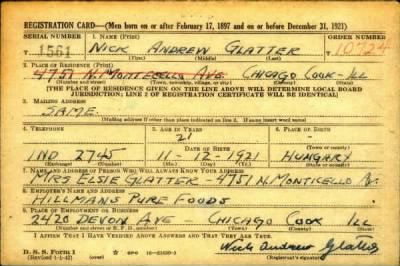 REGISTRATION CARD—(Men born on or after February 17, 1897 and on or before December 31, 1921)
SERIAL NUMBER 1. NAME (Print) ORDER NUMBER
T 1561 NICK ANDREW GLATTER 10724
(First) (Middle) (Last)
2. PLACE OF RESIDENCE (Print)
4751 N. MONTICELLO AVE CHICAGO COOK - ILL
(Number and street) (Town, township, village, or city) (County) (State)
[THE PLACE OF RESIDENCE GIVEN ON THE LINE ABOVE WILL DETERMINE LOCAL BOARD
JURISDICTION; LINE 2 OF REGISTRATION CERTIFICATE WILL BE IDENTICAL]
3. MAILING ADDRESS
SAME
[Mailing address if other than place indicated on line 2. If same insert word same]
4. TELEPHONE 5. AGE IN YEARS 6. PLACE OF BIRTH
21
DATE OF BIRTH
IND 2745 11 - 12 - 1921 HUNGARY
(Exchange) (Number) (Mo.) (Day) (Yr.) (State or country)
7. NAME AND ADDRESS OF PERSON WHO WILL ALWAYS KNOW YOUR ADDRESS
MRS ELSIE GLATTER - 4751 N. MONTICELLO AV.
8. EMPLOYER'S NAME AND ADDRESS
HILLMANS PURE FOODS
9. PLACE OF EMPLOYMENT OR BUSINESS
2420 DEVON AVE - CHICAGO COOK ILL
(Number and street or R. F. D. number) (Town) (County) (State)
I AFFIRM THAT I HAVE VERIFIED ABOVE ANSWERS AND THAT THEY ARE TRUE.
D. S. S. Form 1
(Revised 1-1-42) (over) GPO
Nick Andrew Glatter